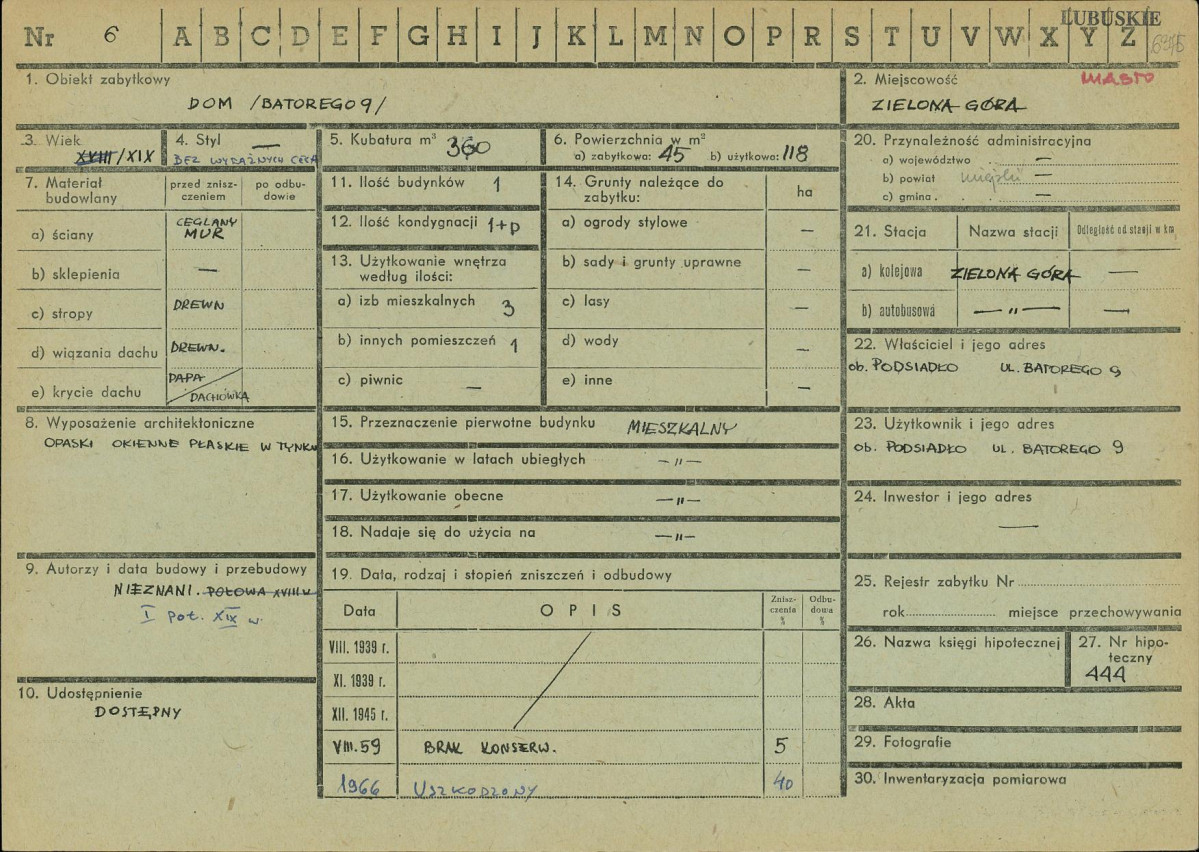 LUBUSKIE
Nr 6 A B C D E F G H I J K L M N O P R S T U V W X Y Z
1. Obiekt zabytkowy
DOM /BATOREGO 9/
2. Miejscowość MIASTO
ZIELONA GÓRA
3. Wiek
XVIII/XIX
4. Styl —
BEZ WYRAŹNYCH CECH
5. Kubatura m³ 360
6. Powierzchnia w m²
a) zabytkowa: 45 b) użytkowa: 118
20. Przynależność administracyjna
a) województwo . —
b) powiat miejski —
c) gmina . . . —
7. Materiał budowlany
przed zniszczeniem
po odbudowie
a) ściany CEGLANY MUR
b) sklepienia —
c) stropy DREWN
d) wiązania dachu DREWN.
e) krycie dachu PAPA / DACHÓWKA
11. Ilość budynków 1
12. Ilość kondygnacji 1+p
13. Użytkowanie wnętrza
według ilości:
a) izb mieszkalnych 3
b) innych pomieszczeń 1
c) piwnic —
14. Grunty należące do
zabytku: ha
a) ogrody stylowe —
b) sady i grunty uprawne —
c) lasy —
d) wody —
e) inne —
21. Stacja Nazwa stacji Odległość od stacji w km
a) kolejowa ZIELONA GÓRA —
b) autobusowa —„— —
22. Właściciel i jego adres
ob. PODSIADŁO UL. BATOREGO 9
8. Wyposażenie architektoniczne
OPASKI OKIENNE PŁASKIE W TYNKU
15. Przeznaczenie pierwotne budynku MIESZKALNY
16. Użytkowanie w latach ubiegłych —„—
17. Użytkowanie obecne —„—
18. Nadaje się do użycia na —„—
23. Użytkownik i jego adres
ob. PODSIADŁO UL. BATOREGO 9
24. Inwestor i jego adres
—
9. Autorzy i data budowy i przebudowy
NIEZNANI. POŁOWA XVIII W
I poł. XIX w.
10. Udostępnienie
DOSTĘPNY
19. Data, rodzaj i stopień zniszczeń i odbudowy
Data OPIS Zniszczenia % Odbudowa %
VIII. 1939 r.
XI. 1939 r.
XII. 1945 r.
VIII. 59 BRAK KONSERW. 5
1966 USZKODZONY 40
25. Rejestr zabytku Nr
rok miejsce przechowywania
26. Nazwa księgi hipotecznej
27. Nr hipoteczny
444
28. Akta
29. Fotografie
30. Inwentaryzacja pomiarowa